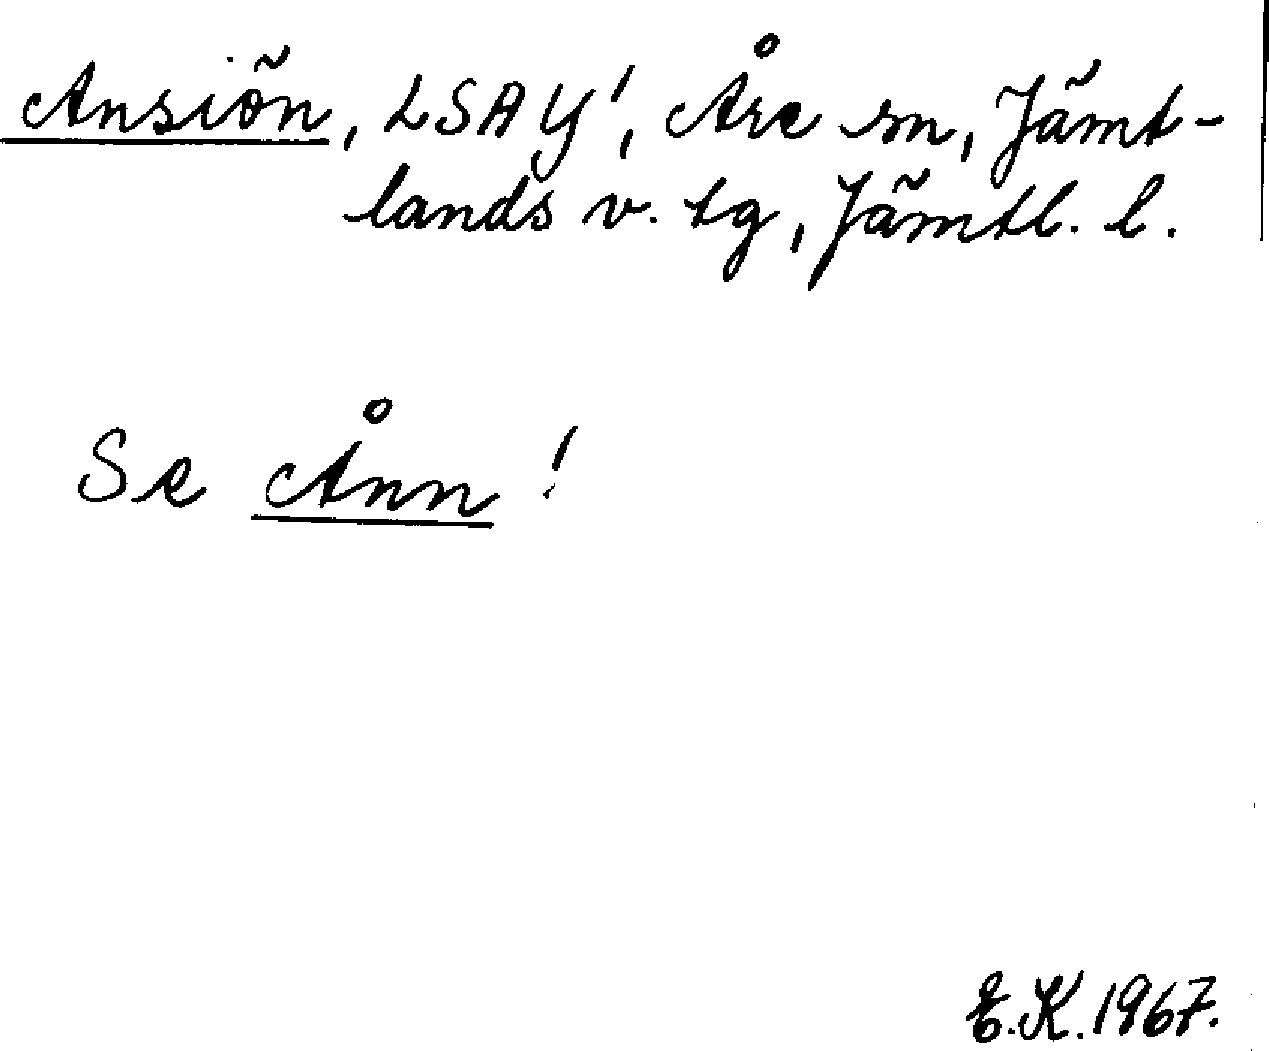 Ansiön, LSA Y', Åre sn, Jämt-
lands v. tg, Jämtl. l.
Se Ånn !
E.K. 1967.